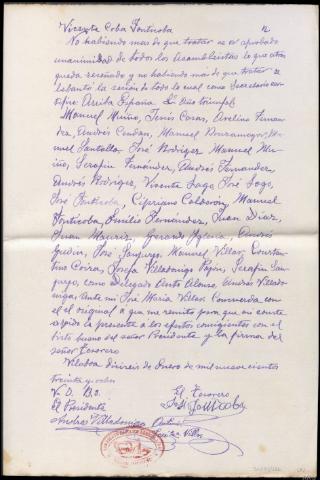 Vicenta Coba Fonticoba
No habiendo mas de que tratar es aprobado
unanimidad de todos los Asambleistas lo que atras
queda reseñado y no habiendo más de que tratar se
lebantó la sesión de todo lo cual como Secretario cer-
tifico Arriba España. II Año triunfal
Manuel Muiño, Jenis Casas, Avelino Fernan-
dez, Andrés Cendan, Manuel
Santalla, José Rodrigez Manuel Mu-
iño, Serafin Fernández, Andrés Fernandez,
Andrés Rodrigez, Vicente Lago José Lago,
José Fonticoba, Cipriano Calderón, Manuel
Fonticoba, Emilio Fernández, Juan Diaz,
Juan Mauriz, Gerardo Iglesia, Andrés
José Sanjurgo, Manuel Villar, Constan-
tino Coiras, Josefa Villadoniga Pajon, Serafin San-
jurgo, como Delegado Anto Alonso, Andrés Villado-
niga. Ante mi José Maria Villar. Concuerda con
el el original a que me remito para que asi conste
espido la presente a los efectos consigientes con el
bisto bueno del señor Presidente y la firma del
señor Tesorero
Vilaboa diecieis de Enero de mil nuevecientos
treinta y ocho
V.º B.º
El Tesorero
El Presidente
José Fonticoba
Andres Villadoniga
Villar